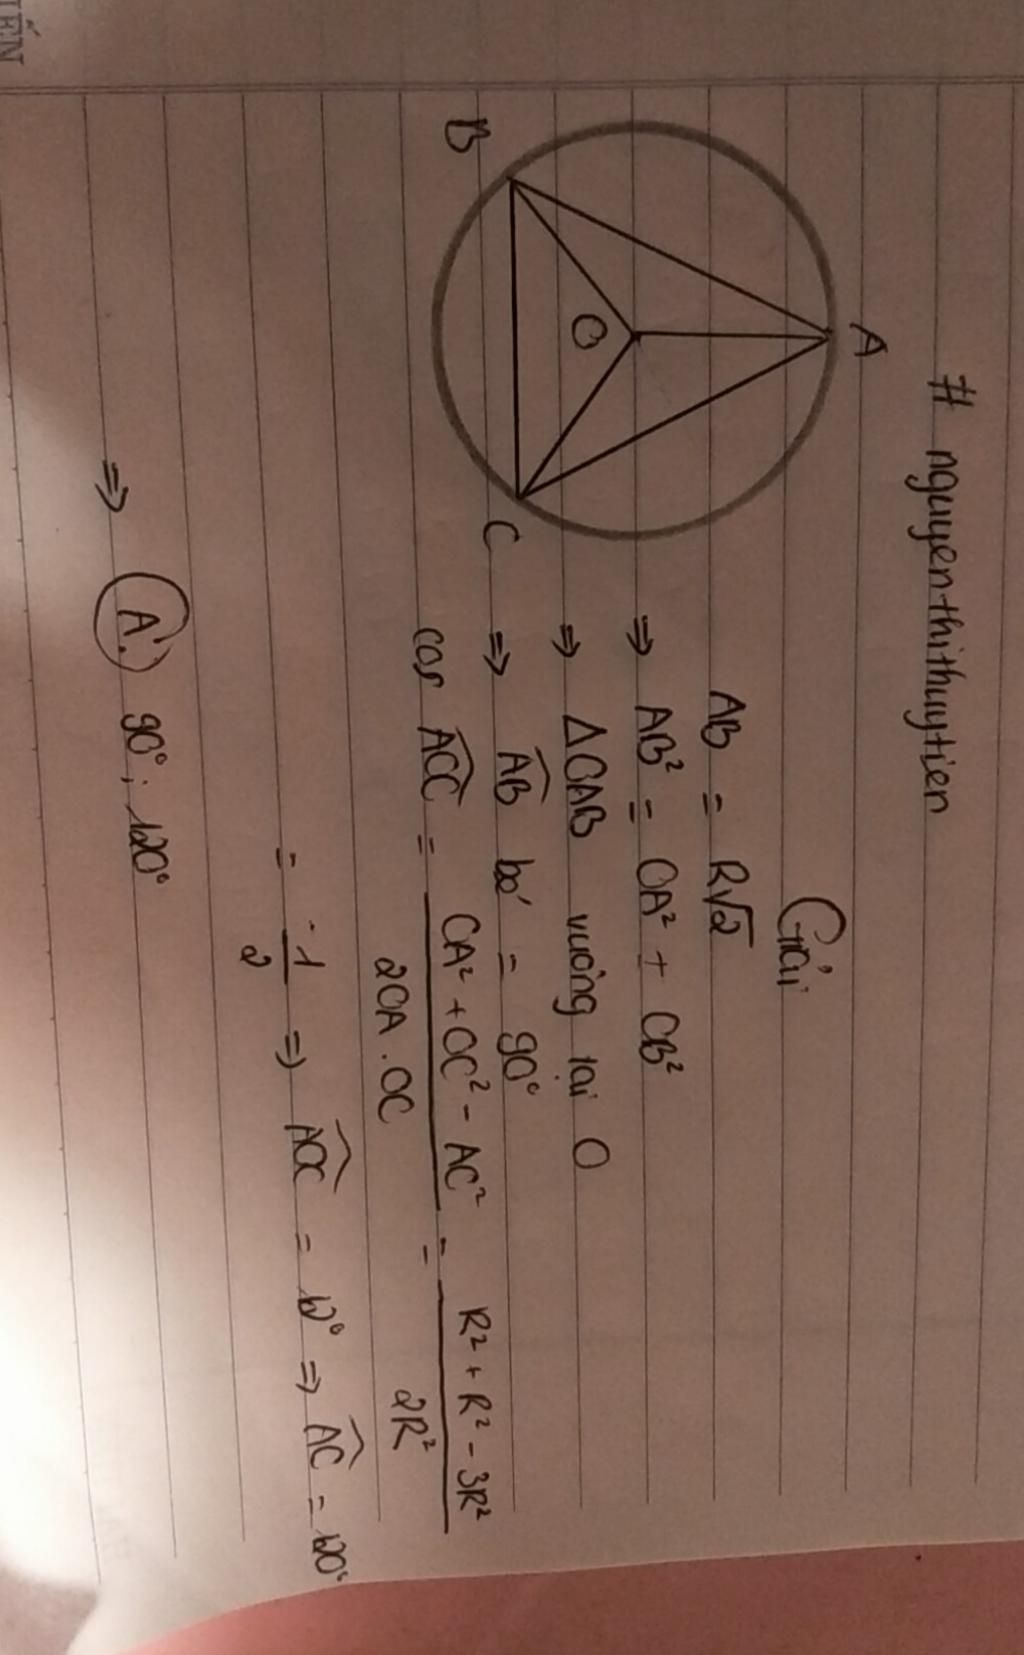 # nguyenthithuytien
Giải
A
B
C
O
AB = R√2
⇒ AB² = OA² + OB²
⇒ ΔOAB vuông tại O
⇒ A͡B bé = 90°
cos AOC = (OA² + OC² - AC²) / (2OA . OC) = (R² + R² - 3R²) / (2R²)
= -1/2 ⇒ AOC = 120° ⇒ A͡C = 120°
⇒ A. 90°; 120°
IẾN